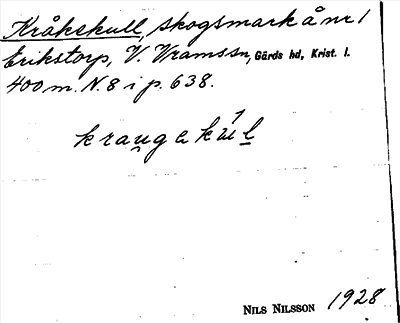 Kråkekull, skogsmark å nr 1
Erikstorp, V. Vramssn, Gärds hd, Krist. l.
400 m. N. 8 i p. 638.
kraugakúl
NILS NILSSON 1928